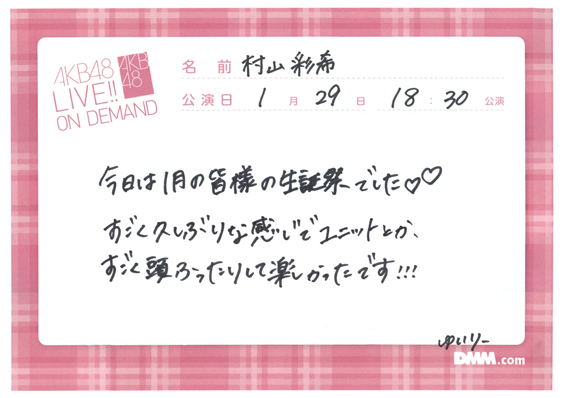 AKB48
LIVE!!
ON DEMAND
AKB
48
名前 村山彩希
公演日 1月29日 18:30公演
今日は1月の皆様の生誕祭でした♡♡
すごく久しぶりな感じでユニットとか、
すごく頭ふったりして楽しかったです!!!
ゆいりー
DMM.com